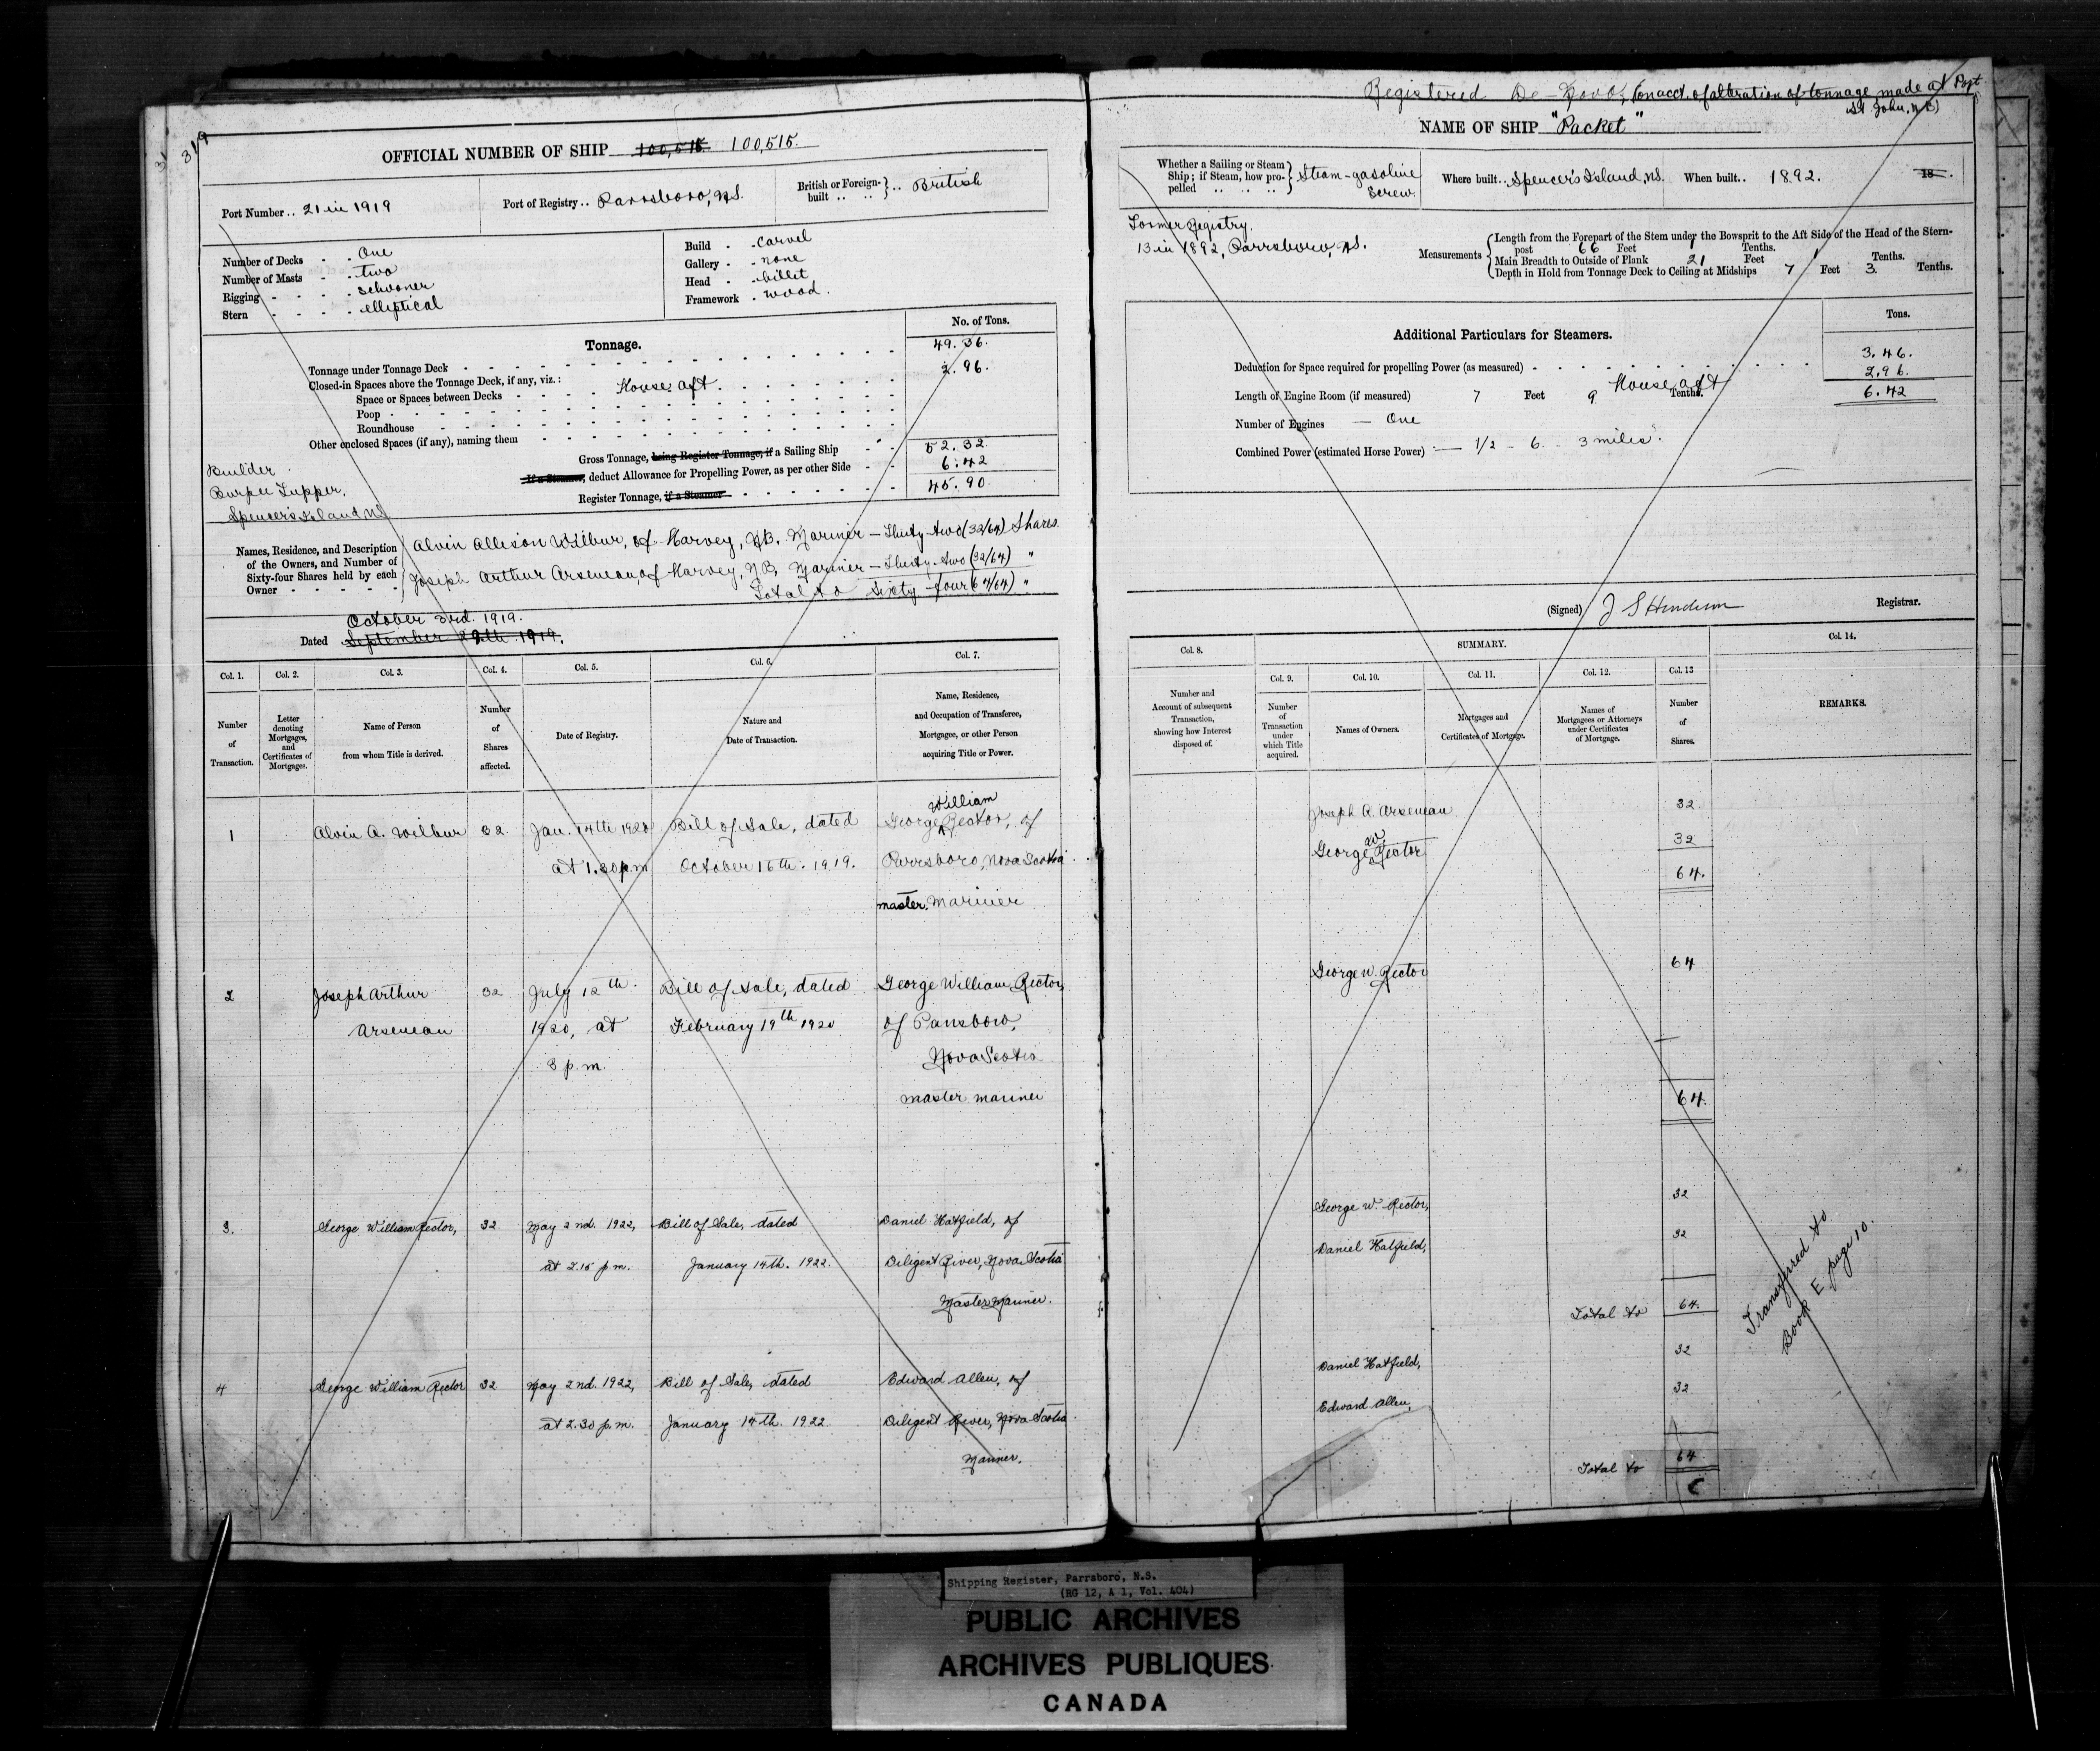 319
OFFICIAL NUMBER OF SHIP 100,515 100,515.
Port Number .. 21 in 1919
Port of Registry .. Parrsboro, N.S.
British or Foreign-built .. .. British
Number of Decks - - One
Number of Masts - - two
Rigging - - - - schooner
Stern - - - - elliptical
Build - - carvel
Gallery - - none
Head - - billet
Framework - wood.
Tonnage.
No. of Tons.
Tonnage under Tonnage Deck 49.36.
Closed-in Spaces above the Tonnage Deck, if any, viz.: 2.96.
Space or Spaces between Decks House aft
Poop
Roundhouse
Other enclosed Spaces (if any), naming them
Gross Tonnage, being Register Tonnage, if a Sailing Ship 52.32
If a Steamer, deduct Allowance for Propelling Power, as per other Side 6.42
Register Tonnage, if a Steamer 45.90.
Builder
Burpee Tupper,
Spencer's Island N.S.
Names, Residence, and Description of the Owners, and Number of Sixty-four Shares held by each Owner
Alvin Allison Wilbur, of Harvey, N.B. Mariner — Thirty-two (32/64) Shares.
Joseph Arthur Arseneau, of Harvey, N.B. Mariner — Thirty-two (32/64) "
Total to Sixty-four (64/64) "
October 3rd. 1919.
Dated September 29th 1919.
Col. 1. Col. 2. Col. 3. Col. 4. Col. 5. Col. 6. Col. 7.
Number of Transaction.
Letter denoting Mortgages, and Certificates of Mortgages.
Name of Person from whom Title is derived.
Number of Shares affected.
Date of Registry.
Nature and Date of Transaction.
Name, Residence, and Occupation of Transferee, Mortgagee, or other Person acquiring Title or Power.
William
1 Alvin A. Wilbur 32. Jan. 14th 1920 Bill of Sale, dated George Rector, of
at 1.30 p.m October 16th. 1919. Parrsboro, Nova Scotia
master. Mariner
2 Joseph Arthur 32 July 12th. Bill of Sale, dated George William Rector,
Arseneau 1920, at February 19th 1920 of Parrsboro,
3 p.m. Nova Scotia
master mariner
3. George William Rector, 32 May 2nd. 1922, Bill of Sale, dated Daniel Hatfield, of
at 2.15 p.m. January 14th. 1922. Diligent River, Nova Scotia
Master Mariner.
4 George William Rector 32 May 2nd. 1922, Bill of Sale, dated Edward Allen, of
at 2.30 p.m. January 14th. 1922 Diligent River, Nova Scotia
Mariner.
Registered De-Novo, (on acct. of alteration of tonnage made at Port
St. John, N.B)
NAME OF SHIP "Packet"
Whether a Sailing or Steam Ship; if Steam, how propelled .. .. .. Steam-gasoline
Screw.
Where built .. Spencer's Island, N.S.
When built .. 1892. 18
Former Registry.
13 in 1892, Parrsboro, N.S.
Measurements
Length from the Forepart of the Stem under the Bowsprit to the Aft Side of the Head of the Stern-
post 66 Feet 1 Tenths.
Main Breadth to Outside of Plank 21 Feet 1 Tenths.
Depth in Hold from Tonnage Deck to Ceiling at Midships 7 Feet 3. Tenths.
Additional Particulars for Steamers.
Tons.
Deduction for Space required for propelling Power (as measured) 3.46.
House aft 2.96.
Length of Engine Room (if measured) 7 Feet 9 Tenths. 6.42
Number of Engines — One
Combined Power (estimated Horse Power) — 1/2 - 6. - 3 miles.
(Signed) J S Henderson Registrar.
SUMMARY.
Col. 8. Col. 9. Col. 10. Col. 11. Col. 12. Col. 13 Col. 14.
Number and Account of subsequent Transaction, showing how Interest disposed of.
Number of Transaction under which Title acquired.
Names of Owners.
Mortgages and Certificates of Mortgage.
Names of Mortgagees or Attorneys under Certificates of Mortgage.
Number of Shares.
REMARKS.
Joseph A. Arseneau 32
George W. Rector 32
64.
George W. Rector 64
64.
George W. Rector, 32
Daniel Hatfield, 32
Total to 64.
Daniel Hatfield, 32
Edward Allen, 32
Total to 64
Transferred to
Book E page 10.
Shipping Register, Parrsboro, N.S.
(RG 12, A 1, Vol. 404)
PUBLIC ARCHIVES
ARCHIVES PUBLIQUES
CANADA